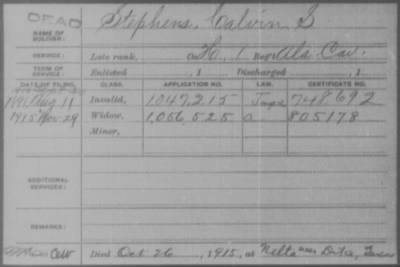 DEAD
NAME OF SOLDIER: Stephens, Calvin S
SERVICE: Late rank, Co. H, 1 Reg't Ala Cav.
TERM OF SERVICE: Enlisted , 1 Discharged , 1
DATE OF FILING. CLASS. APPLICATION NO. LAW. CERTIFICATE NO.
1891 Aug 11 Invalid, 1047,215 748692
1915 Nov 29 Widow, 1,056,525 a 805178
Minor,
ADDITIONAL SERVICES:
REMARKS:
Died Oct 26, 1915, at